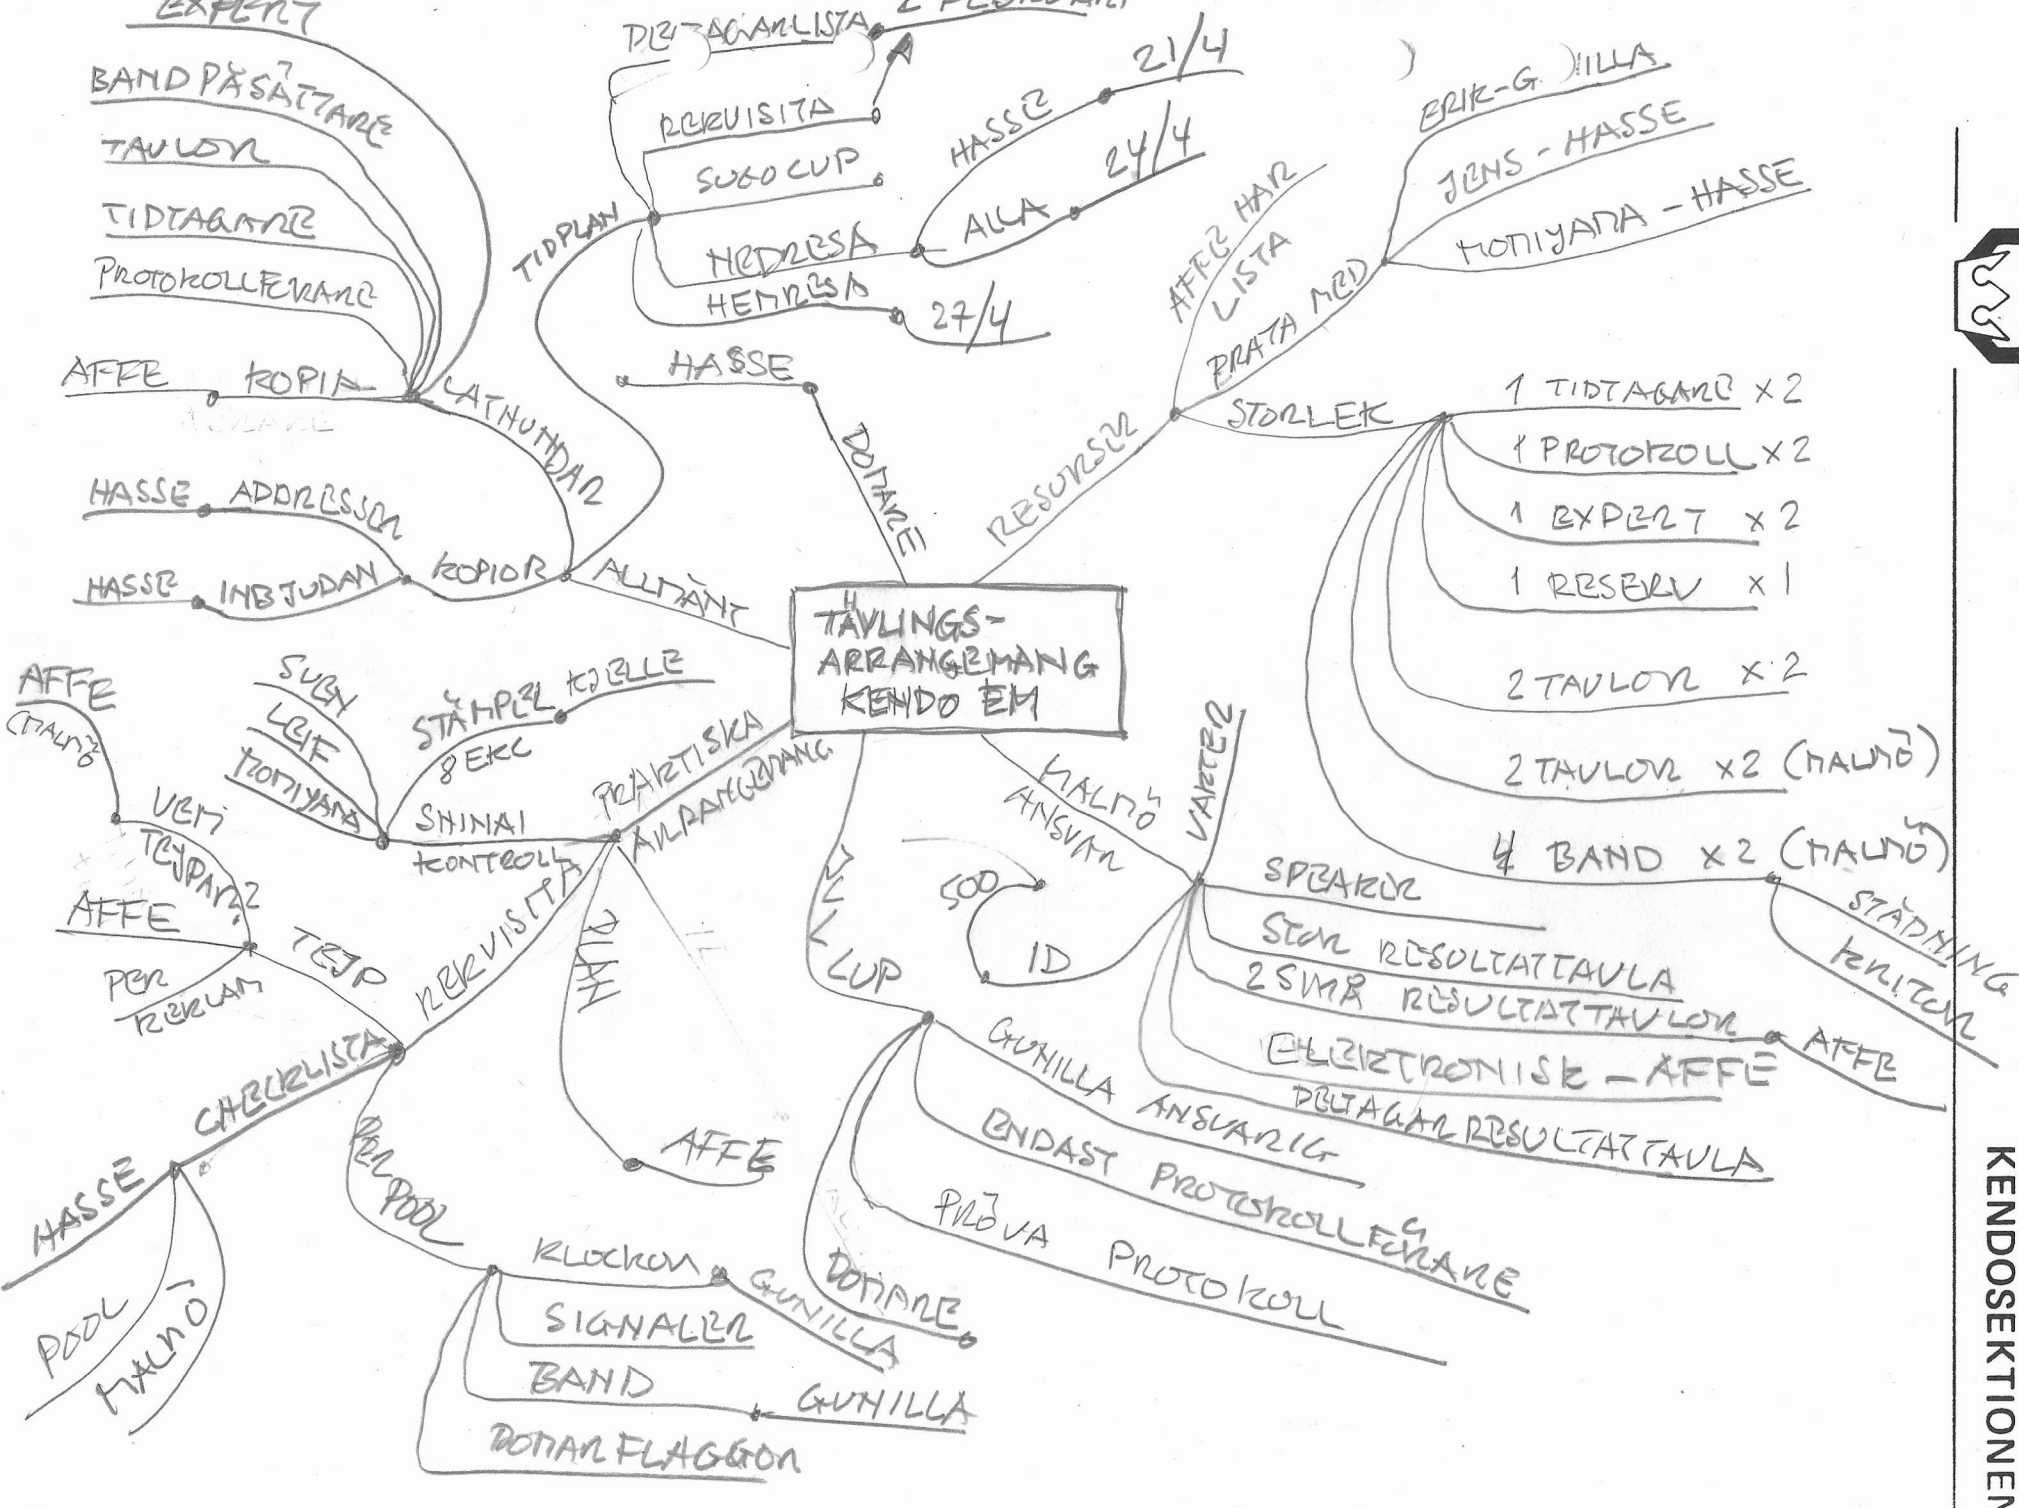 EXPERT
BANDPÅSÄTTARE
TAVLOR
TIDTAGARE
PROTOKOLLFÖRARE
AFFE
KOPIA
LATHUNDAR
HASSE
ADDRESSER
HASSE
INBJUDAN
KOPIOR
ALLMÄNT
TIDPLAN
DELTAGARLISTA
REKVISITA
SUGO CUP
NEDRESA
HASSE
21/4
ALLA
24/4
HEMRESA
27/4
HASSE
DOMARE
RESURSER
AFFE HAR
LISTA
PRATA MED
ERIK-G
JENS - HASSE
MOMIYAMA - HASSE
STORLEK
1 TIDTAGARE x 2
1 PROTOKOLL x 2
1 EXPERT x 2
1 RESERV x 1
2 TAVLOR x 2
2 TAVLOR x 2 (MALMÖ)
4 BAND x 2 (MALMÖ)
STÄDNING
KRITOR
TÄVLINGS-
ARRANGEMANG
KENDO EM
MALMÖ
ANSVAR
VAKTER
SPEAKER
STOR RESULTATTAVLA
2 SMÅ RESULTATTAVLOR
AFFE
ELEKTRONISK - AFFE
DELTAGARRESULTATTAVLA
ID
500
CUP
GUNILLA ANSVARIG
ENDAST PROTOKOLLFÖRARE
PRÖVA PROTOKOLL
DOMARE
PRAKTISKA
ARRANGEMANG
SHINAI
KONTROLL
STÄMPEL
8 EKC
KJELLE
SVEN
LEIF
MOMIYAMA
AFFE
REKVISITA
TEJP
VEM
TEJPAR?
AFFE
(MALMÖ
AFFE
PER
REKLAM
CHECKLISTA
HASSE
POOL
MALMÖ
PER POOL
KLOCKOR
GUNILLA
SIGNALER
BAND
GUNILLA
DOMARFLAGGOR
KENDOSEKTIONEN